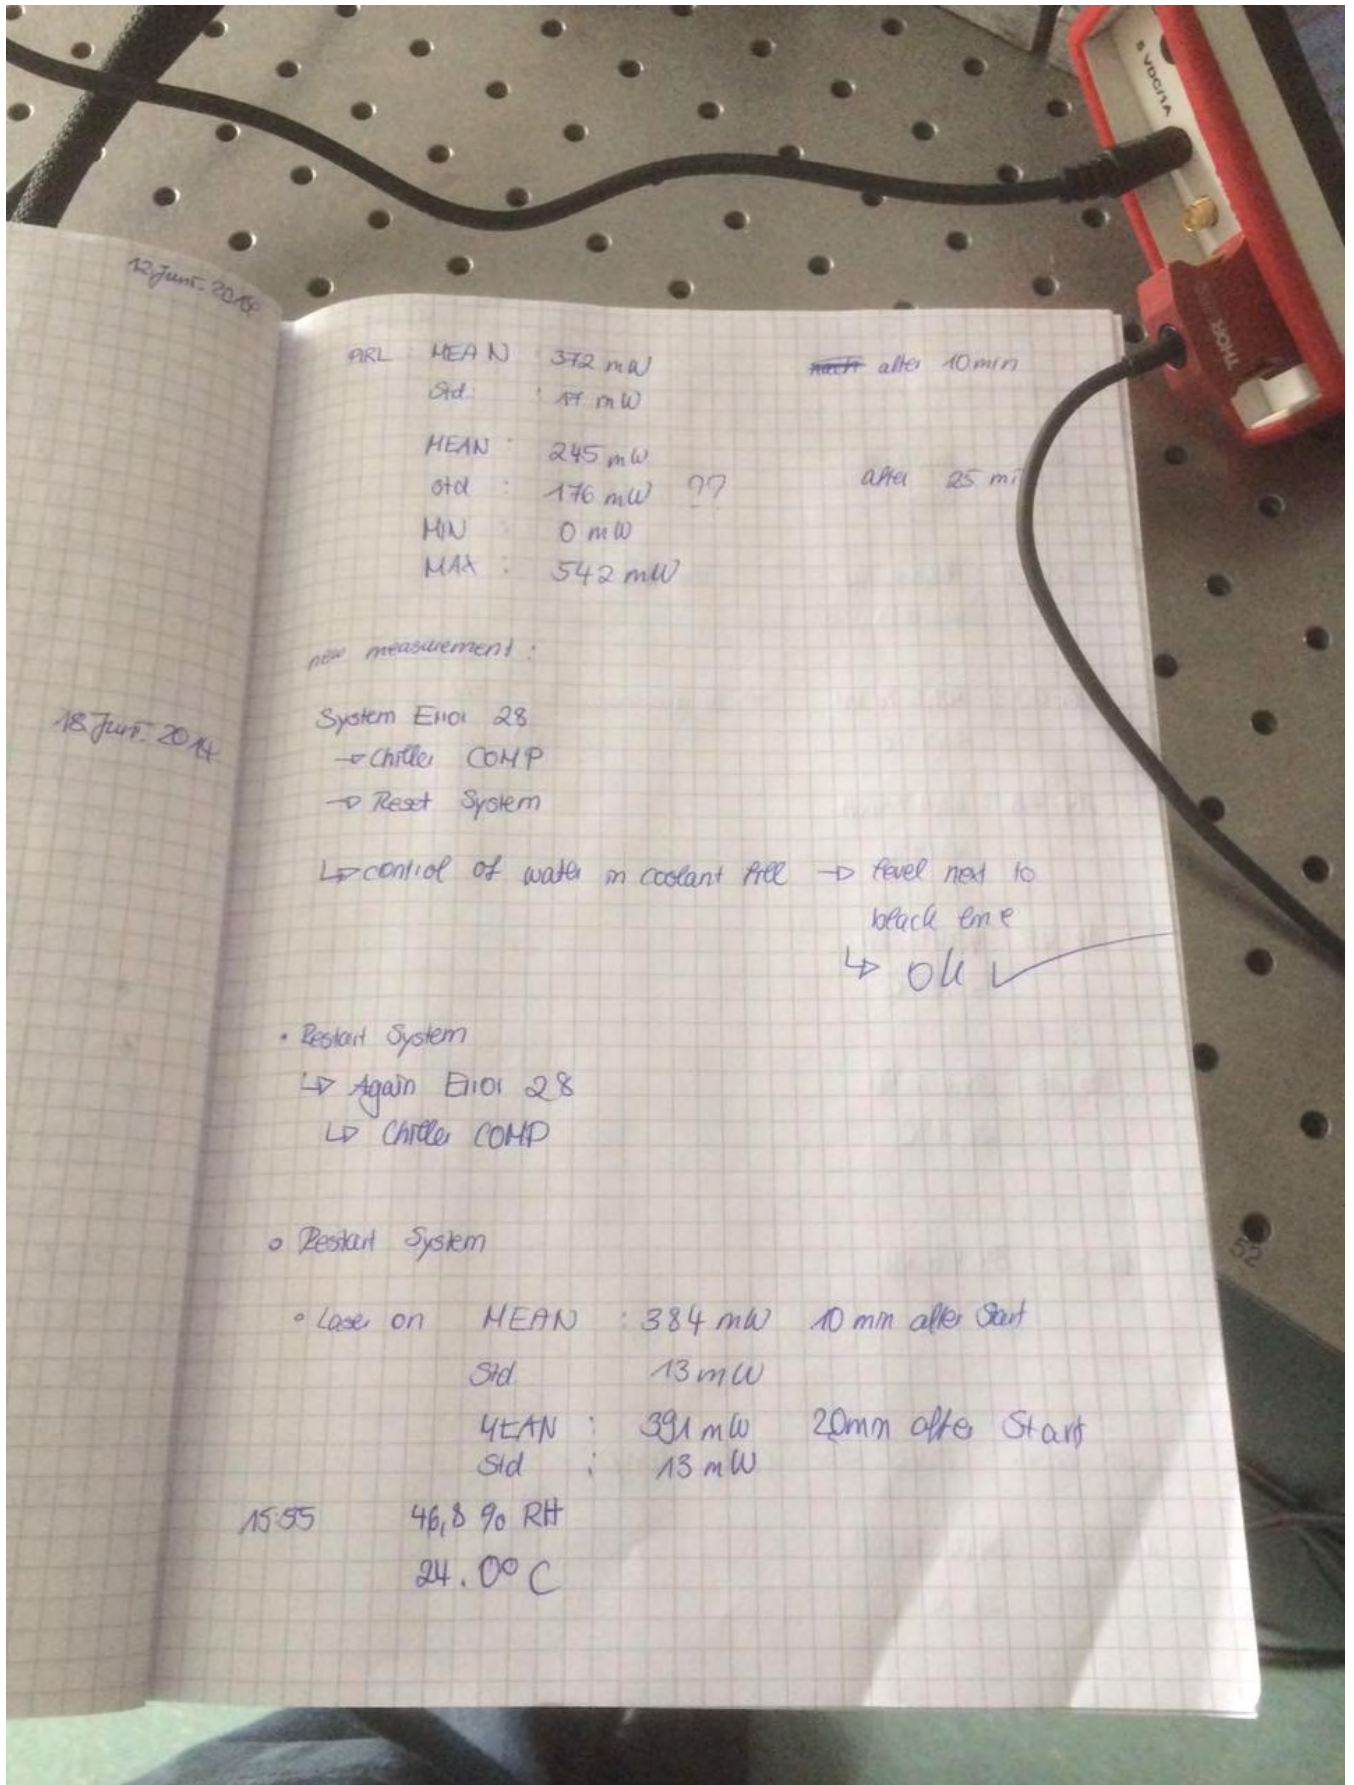 5 VDC/1A
THOR
12. Juni. 2014
MEAN : 372 mW after 10 min
Std. : 17 mW
MEAN : 245 mW
std : 176 mW ?? after 25 mi
MIN : 0 mW
MAX : 542 mW
new measurement :
18. Juni. 2014
System Error 28
→ Chiller COMP
→ Reset System
↳ control of water in coolant fill → level next to
black line
↳ ok ✓
• Restart System
↳ Again Error 28
↳ Chiller COMP
52
o Restart System
o Laser on MEAN : 384 mW 10 min after Start
Std. 13 mW
MEAN : 391 mW 20min after Start
Std : 13 mW
15:55 46,8 % RH
24.0° C